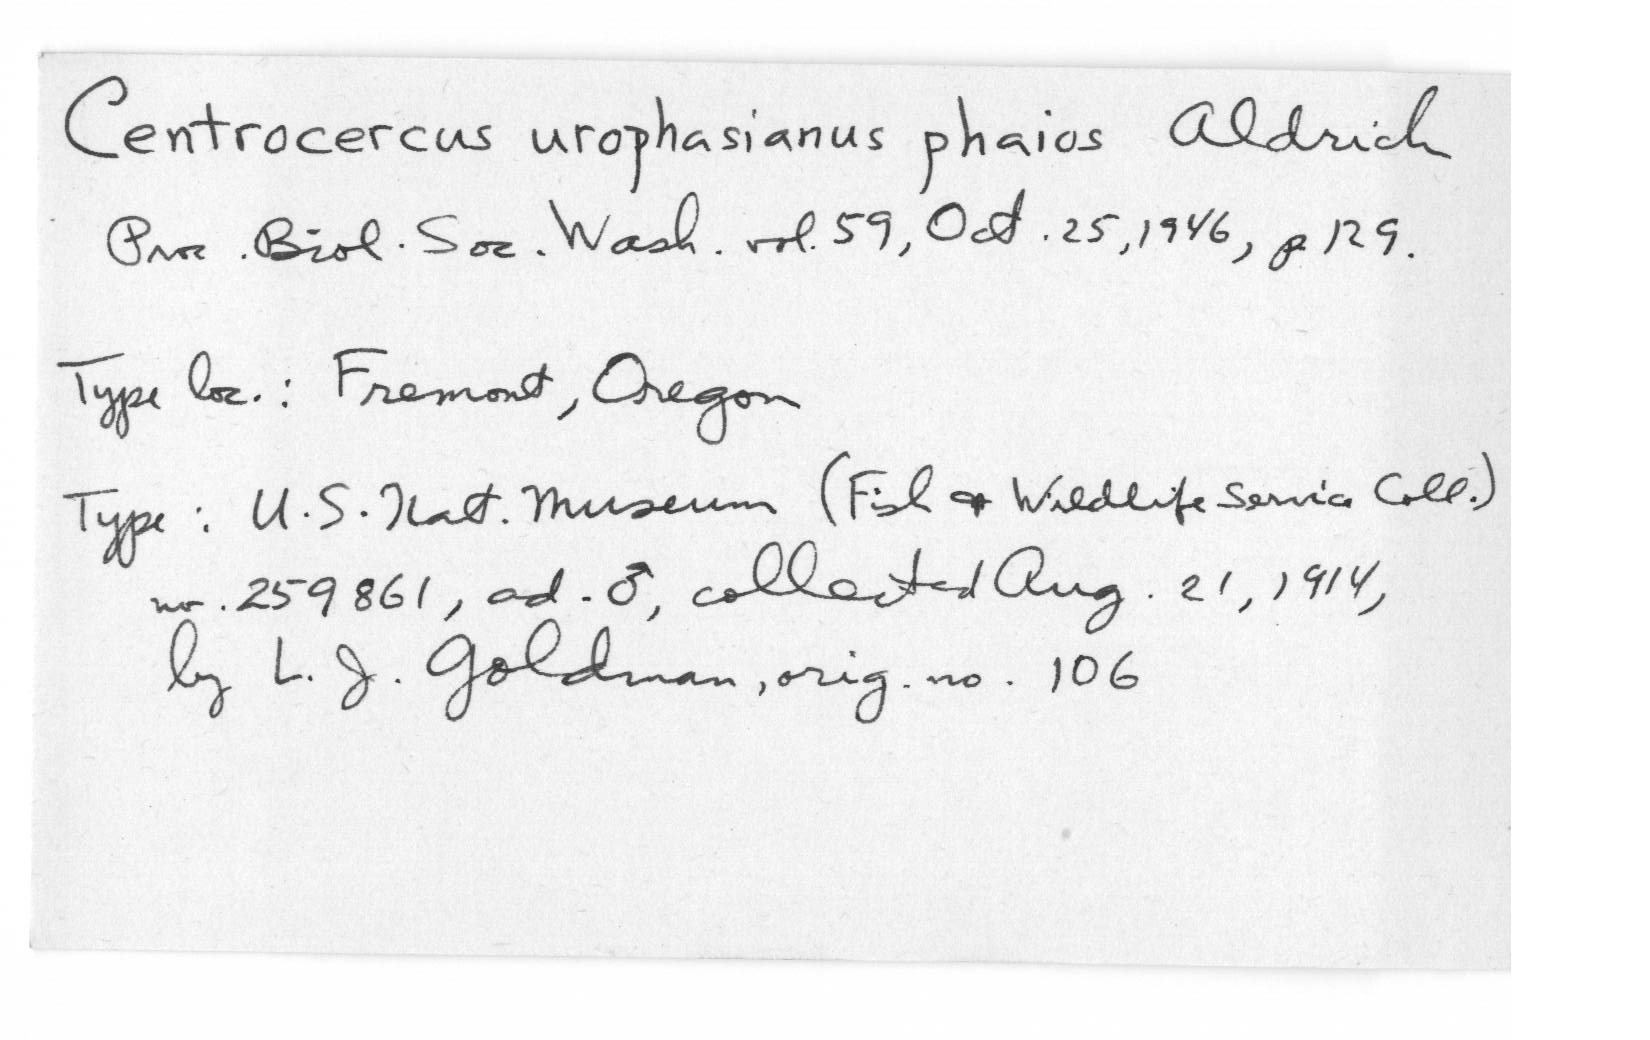 Centrocercus urophasianus phaios Aldrich
Proc. Biol. Soc. Wash. vol. 59, Oct. 25, 1946, p 129.
Type loc.: Fremont, Oregon
Type: U.S. Nat. Museum (Fish & Wildlife Service Coll.)
no. 259861, ad. ♂, collected Aug. 21, 1914,
by L. J. Goldman, orig. no. 106